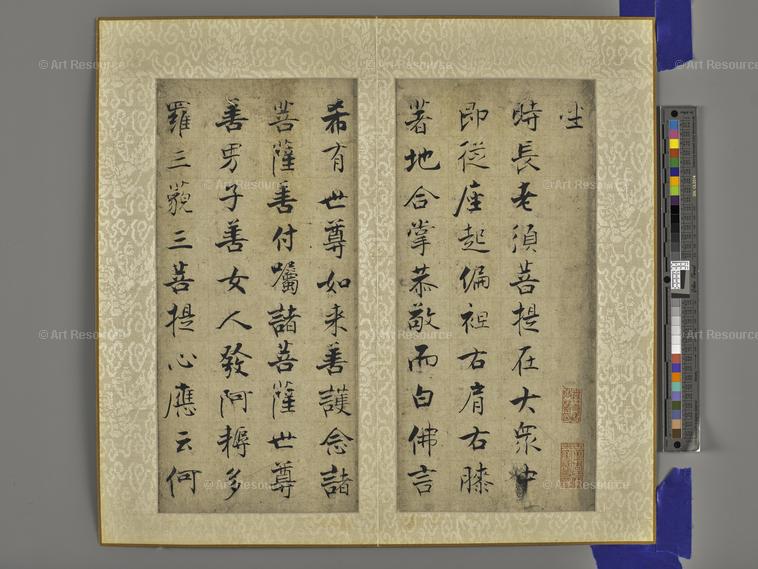 坐
時長老須菩提在大眾中
即從座起偏袒右肩右膝
著地合掌恭敬而白佛言
希有世尊如来善護念諸
菩薩善付囑諸菩薩世尊
善男子善女人發阿耨多
羅三藐三菩提心應云何
© Art Resource
© Art Resource
© Art Resource
© Art Resource
© Art Resource
© Art Resource
© Art Resource
© Art Resource
© Art Resource
© Art Resource
© Art Resource